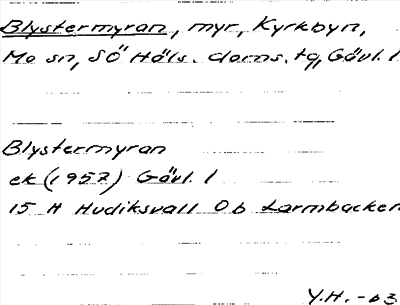 Blystermyran, myr, Kyrkbyn,
Mo sn, SÖ Häls. doms. tg, Gävl. l
Blystermyran
ek (1957) Gävl. l
15 H Hudiksvall 0 b Larmbacken
Y.H. -63